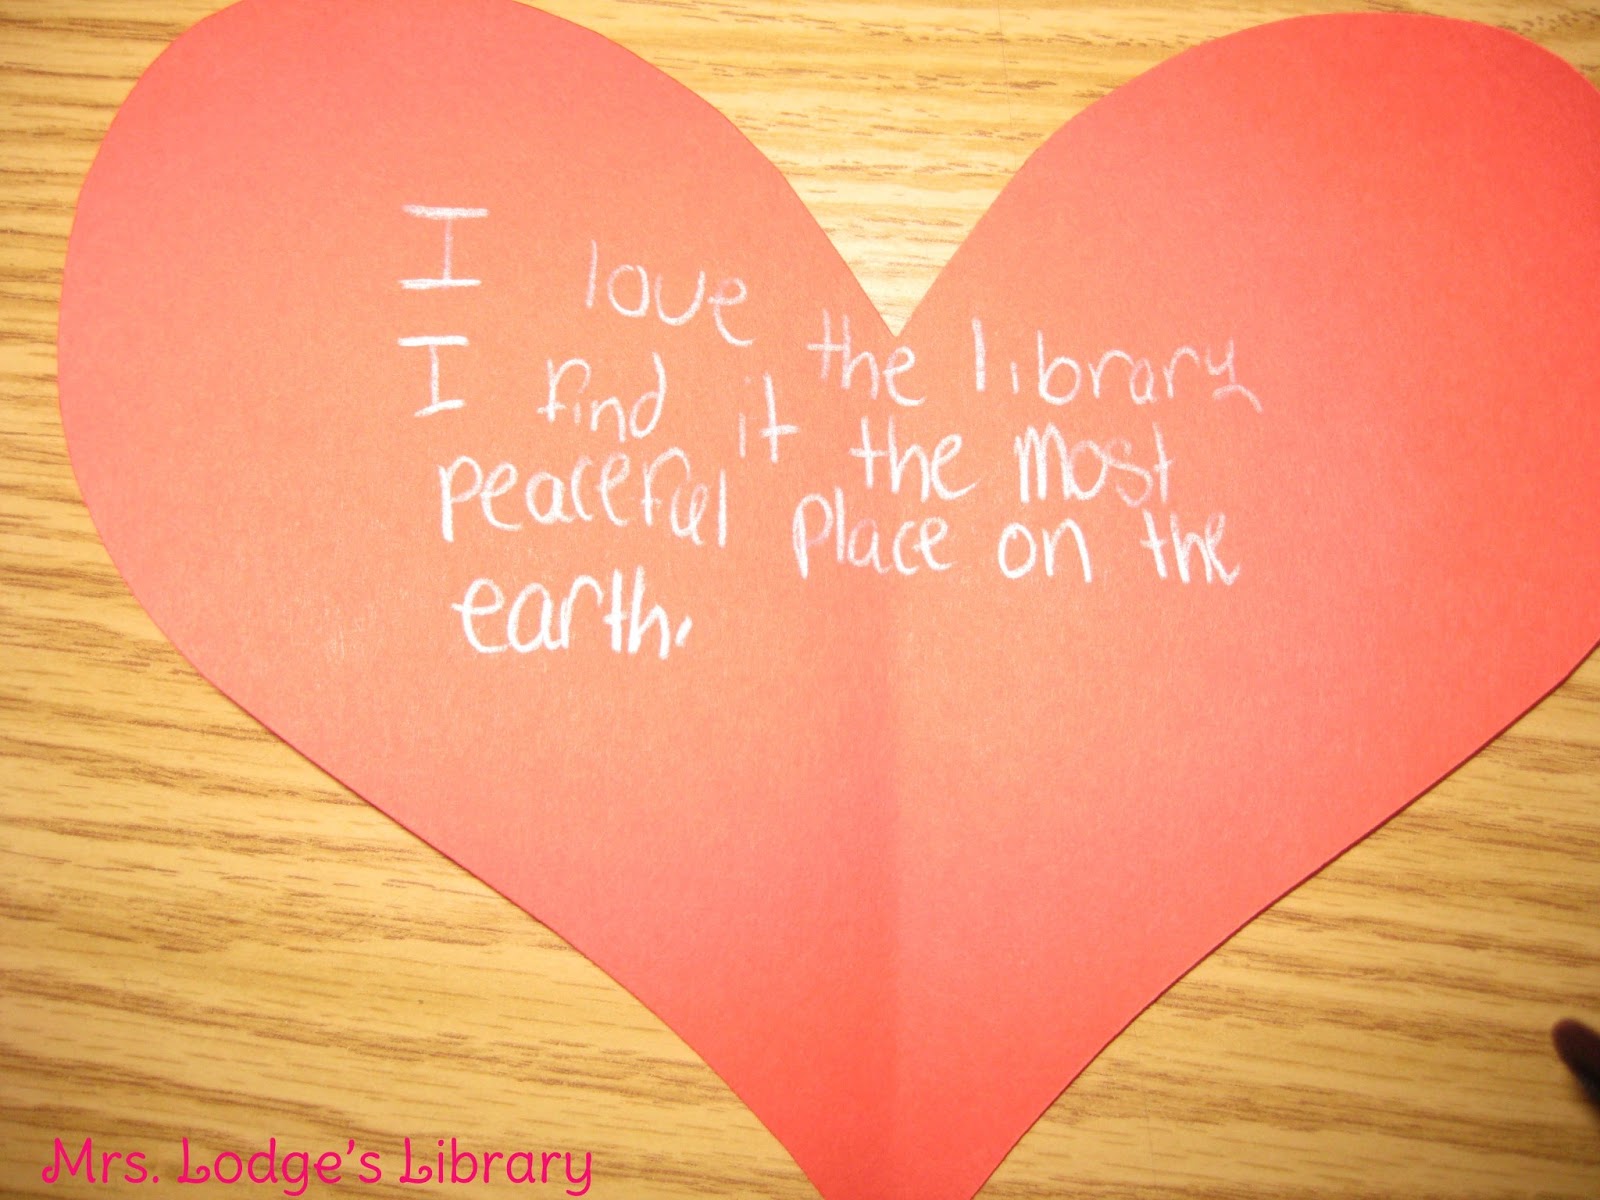 I love the library
I find it the most
peaceful place on the
earth.
Mrs. Lodge's Library